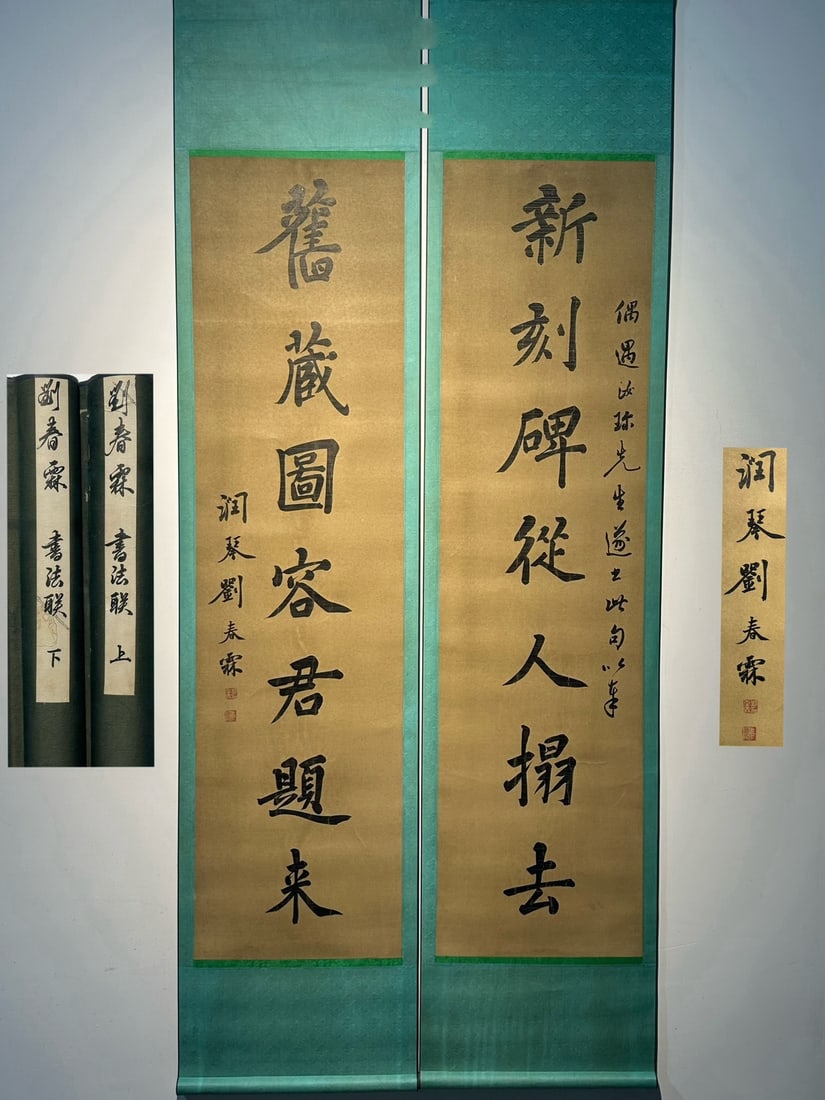 新刻碑從人搨去
偶遇汝珎先生遂书此句以奉
舊藏圖容君題来
润琴劉春霖
劉春霖 書法联 上
劉春霖 書法联 下
润琴劉春霖